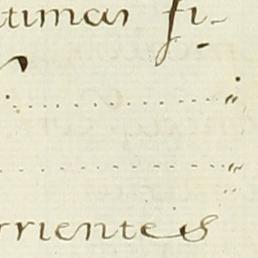 timas fi-
"
"
rrientes